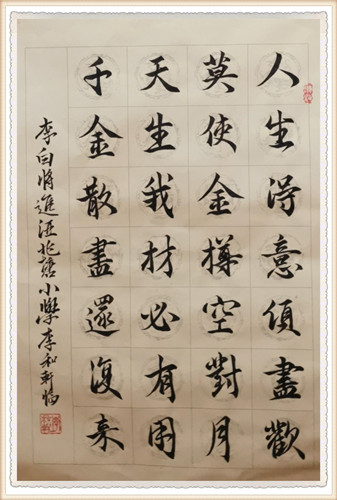 人生得意須盡歡
莫使金樽空對月
天生我材必有用
千金散盡還復来
李白將進酒 小學李和軒